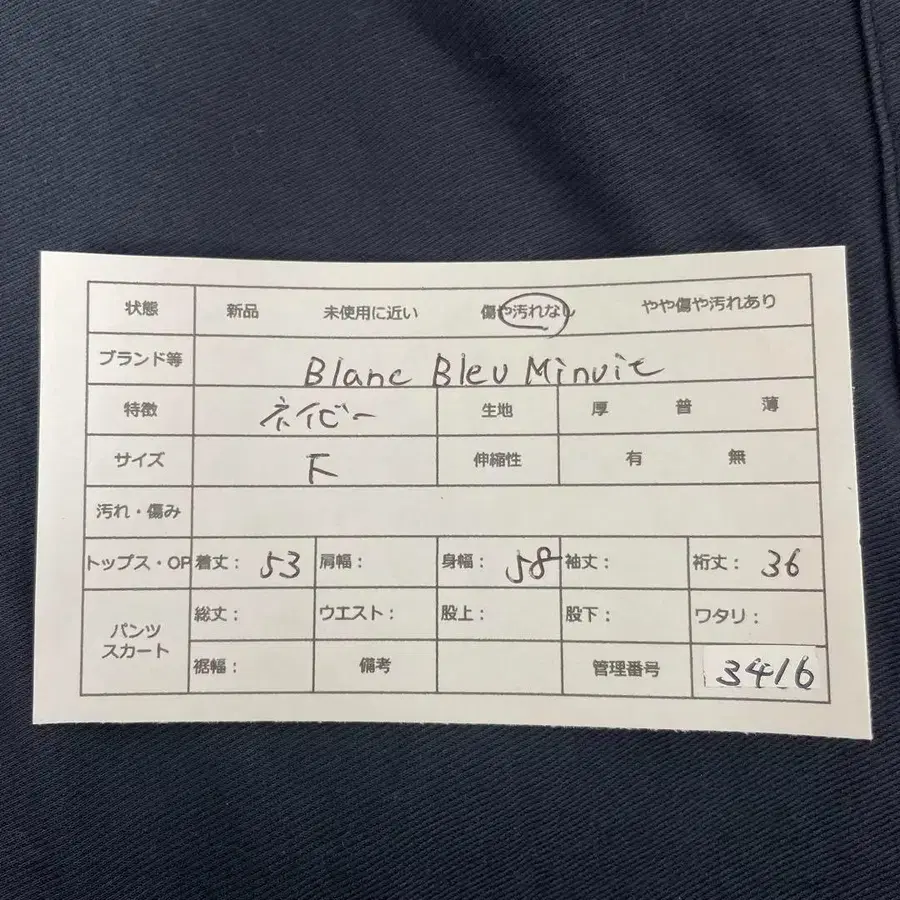 状態 新品 未使用に近い 傷や汚れなし やや傷や汚れあり
ブランド等 Blanc Bleu Minuit
特徴 ネイビー 生地 厚 普 薄
サイズ F 伸縮性 有 無
汚れ・傷み
トップス・OP 着丈: 53 肩幅: 身幅: 58 袖丈: 裄丈: 36
パンツ
スカート
総丈: ウエスト: 股上: 股下: ワタリ:
裾幅: 備考 管理番号 3416